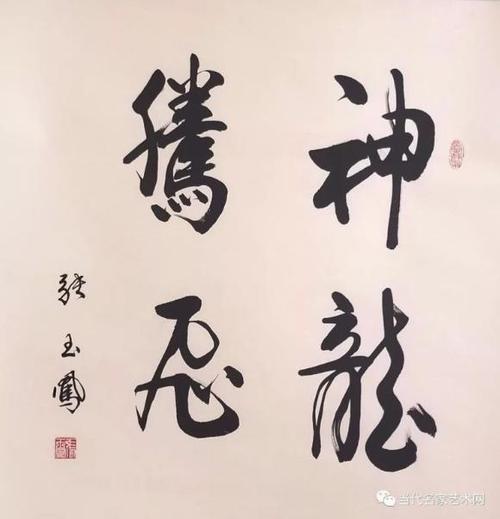 神龍
騰飛
張玉鳳
当代名家艺术网